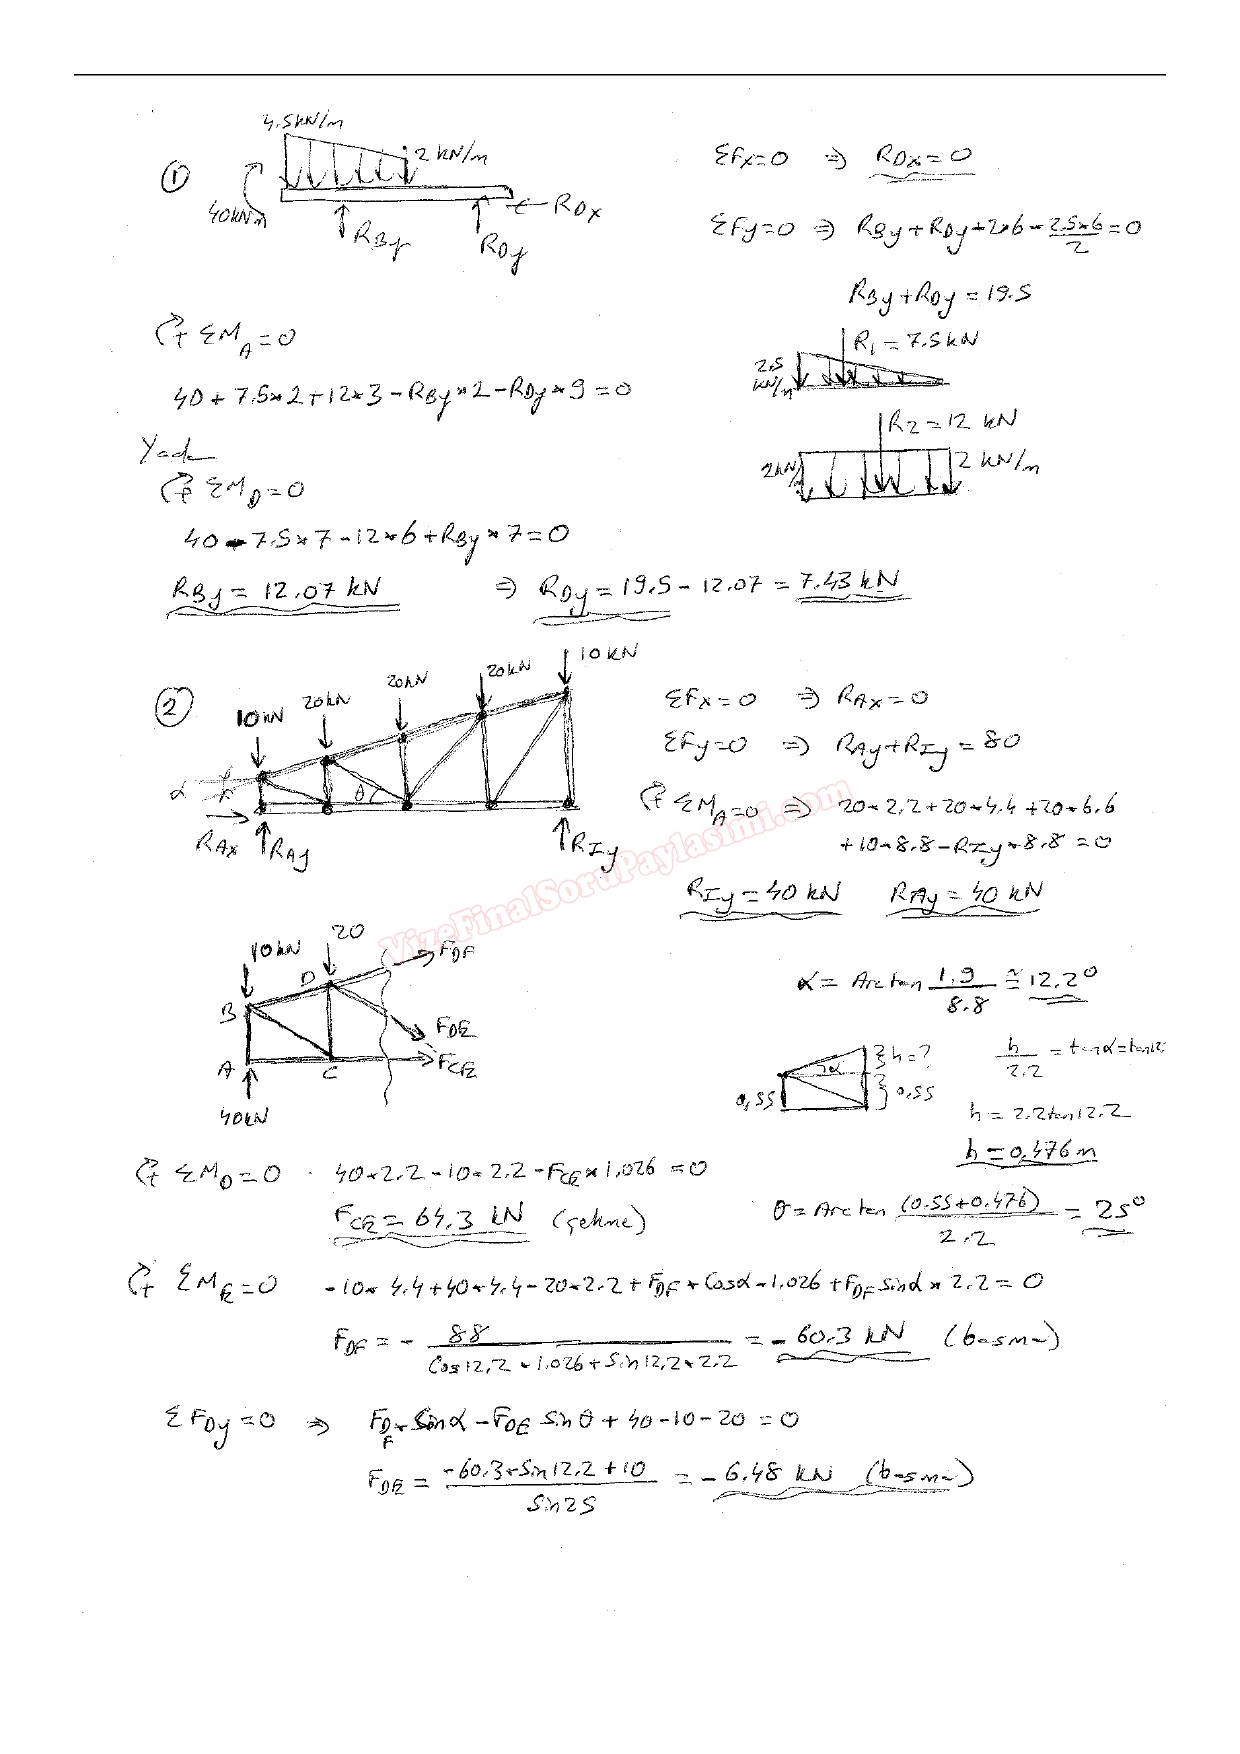 4.5kN/m
2 kN/m
①
40kNm
RBy
RDy
RDx
ΣFx=0 ⇒ RDx=0
ΣFy=0 ⇒ RBy+RDy+2*6-2.5*6/2=0
RBy+RDy=19.5
ΣMA=0
40+7.5*2+12*3-RBy*2-RDy*9=0
R1=7.5kN
2.5 kN/m
R2=12 kN
2kN/m
2 kN/m
Yada
ΣMD=0
40-7.5*7-12*6+RBy*7=0
RBy=12.07 kN ⇒ RDy=19.5-12.07=7.43 kN
②
10kN
20kN
20kN
20kN
10kN
α
θ
RAx
RAy
RIy
ΣFx=0 ⇒ RAx=0
ΣFy=0 ⇒ RAy+RIy=80
ΣMA=0 ⇒ 20*2.2+20*4.4+20*6.6
+10*8.8-RIy*8.8=0
RIy=40 kN RAy=40 kN
VizeFinalSoruPaylasimi.com
10kN
20
FDF
B
D
FDE
FCE
A
C
40kN
α= Arctan 1.9/8.8 ≅ 12.2°
h=?
α
0.55
0.55
h/2.2 = tanα=tan12
h=2.2tan12.2
h=0.476m
ΣMD=0 40*2.2-10*2.2-FCE*1.026=0
FCE=64.3 kN (çekme)
θ=Arctan (0.55+0.476)/2.2 = 25°
ΣME=0 -10*4.4+40*4.4-20*2.2+FDF*Cosα*1.026+FDF Sinα*2.2=0
FDF=- 88/Cos12.2*1.026+Sin12.2*2.2 =-60.3 kN (basma)
ΣFDy=0 ⇒ FDF*Sinα-FDE Sinθ+40-10-20=0
FDE= -60.3*Sin12.2+10/Sin25 =-6.48 kN (basma)